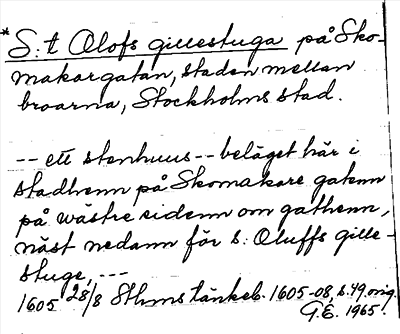 * S:t Olofs gillestuga på Sko-
makargatan, staden mellan
broarna, Stockholms stad.
-- ett stenhuus -- beläget här i
stadhenn på Skomakare gatenn
på wästre sidenn om gathenn,
näst nedann för S. Oluffs gille-
stuge, ---
1605 28/8 Sthms tänkeb. 1605-08, s. 49, orig.
G.E. 1965.